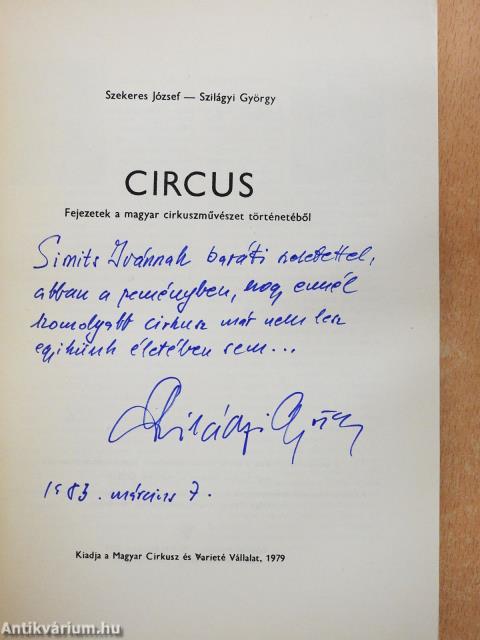 Szekeres József — Szilágyi György
CIRCUS
Fejezetek a magyar cirkuszművészet történetéből
Simits Ivánnak baráti szeretettel,
abban a reményben, hogy ennél
komolyabb cirkusz már nem lesz
egyikünk életében sem...
Szilágyi György
1983. március 7.
Kiadja a Magyar Cirkusz és Varieté Vállalat, 1979
Antikvárium.hu